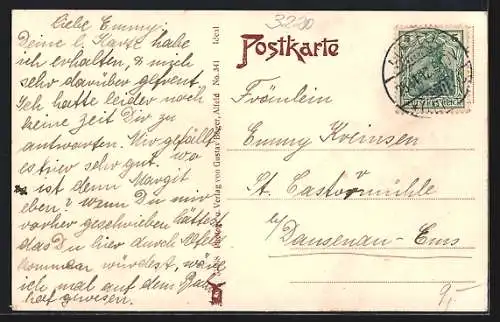 Liebe Emmy!
Deine l. Karte habe
ich erhalten, & mich
sehr darüber gefreut.
Ich hatte leider noch
keine Zeit Dir zu
antworten. Mir gefällt
es hier sehr gut. Wo
ist denn Margit
eben? Wenn Du mir
vorher geschrieben hättest
das Du hier durch Alfeld
kommen würdest, wäre
ich mal auf dem Bahn
hof gewesen.
Verlag von Gustav Buger, Alfeld No. 341 Ideal
3230
Postkarte
Fräulein
Emmy Kreinsen
St. Castormühle
b/ Dausenau-Ems
5 5
DEUTSCHES REICH
9,-